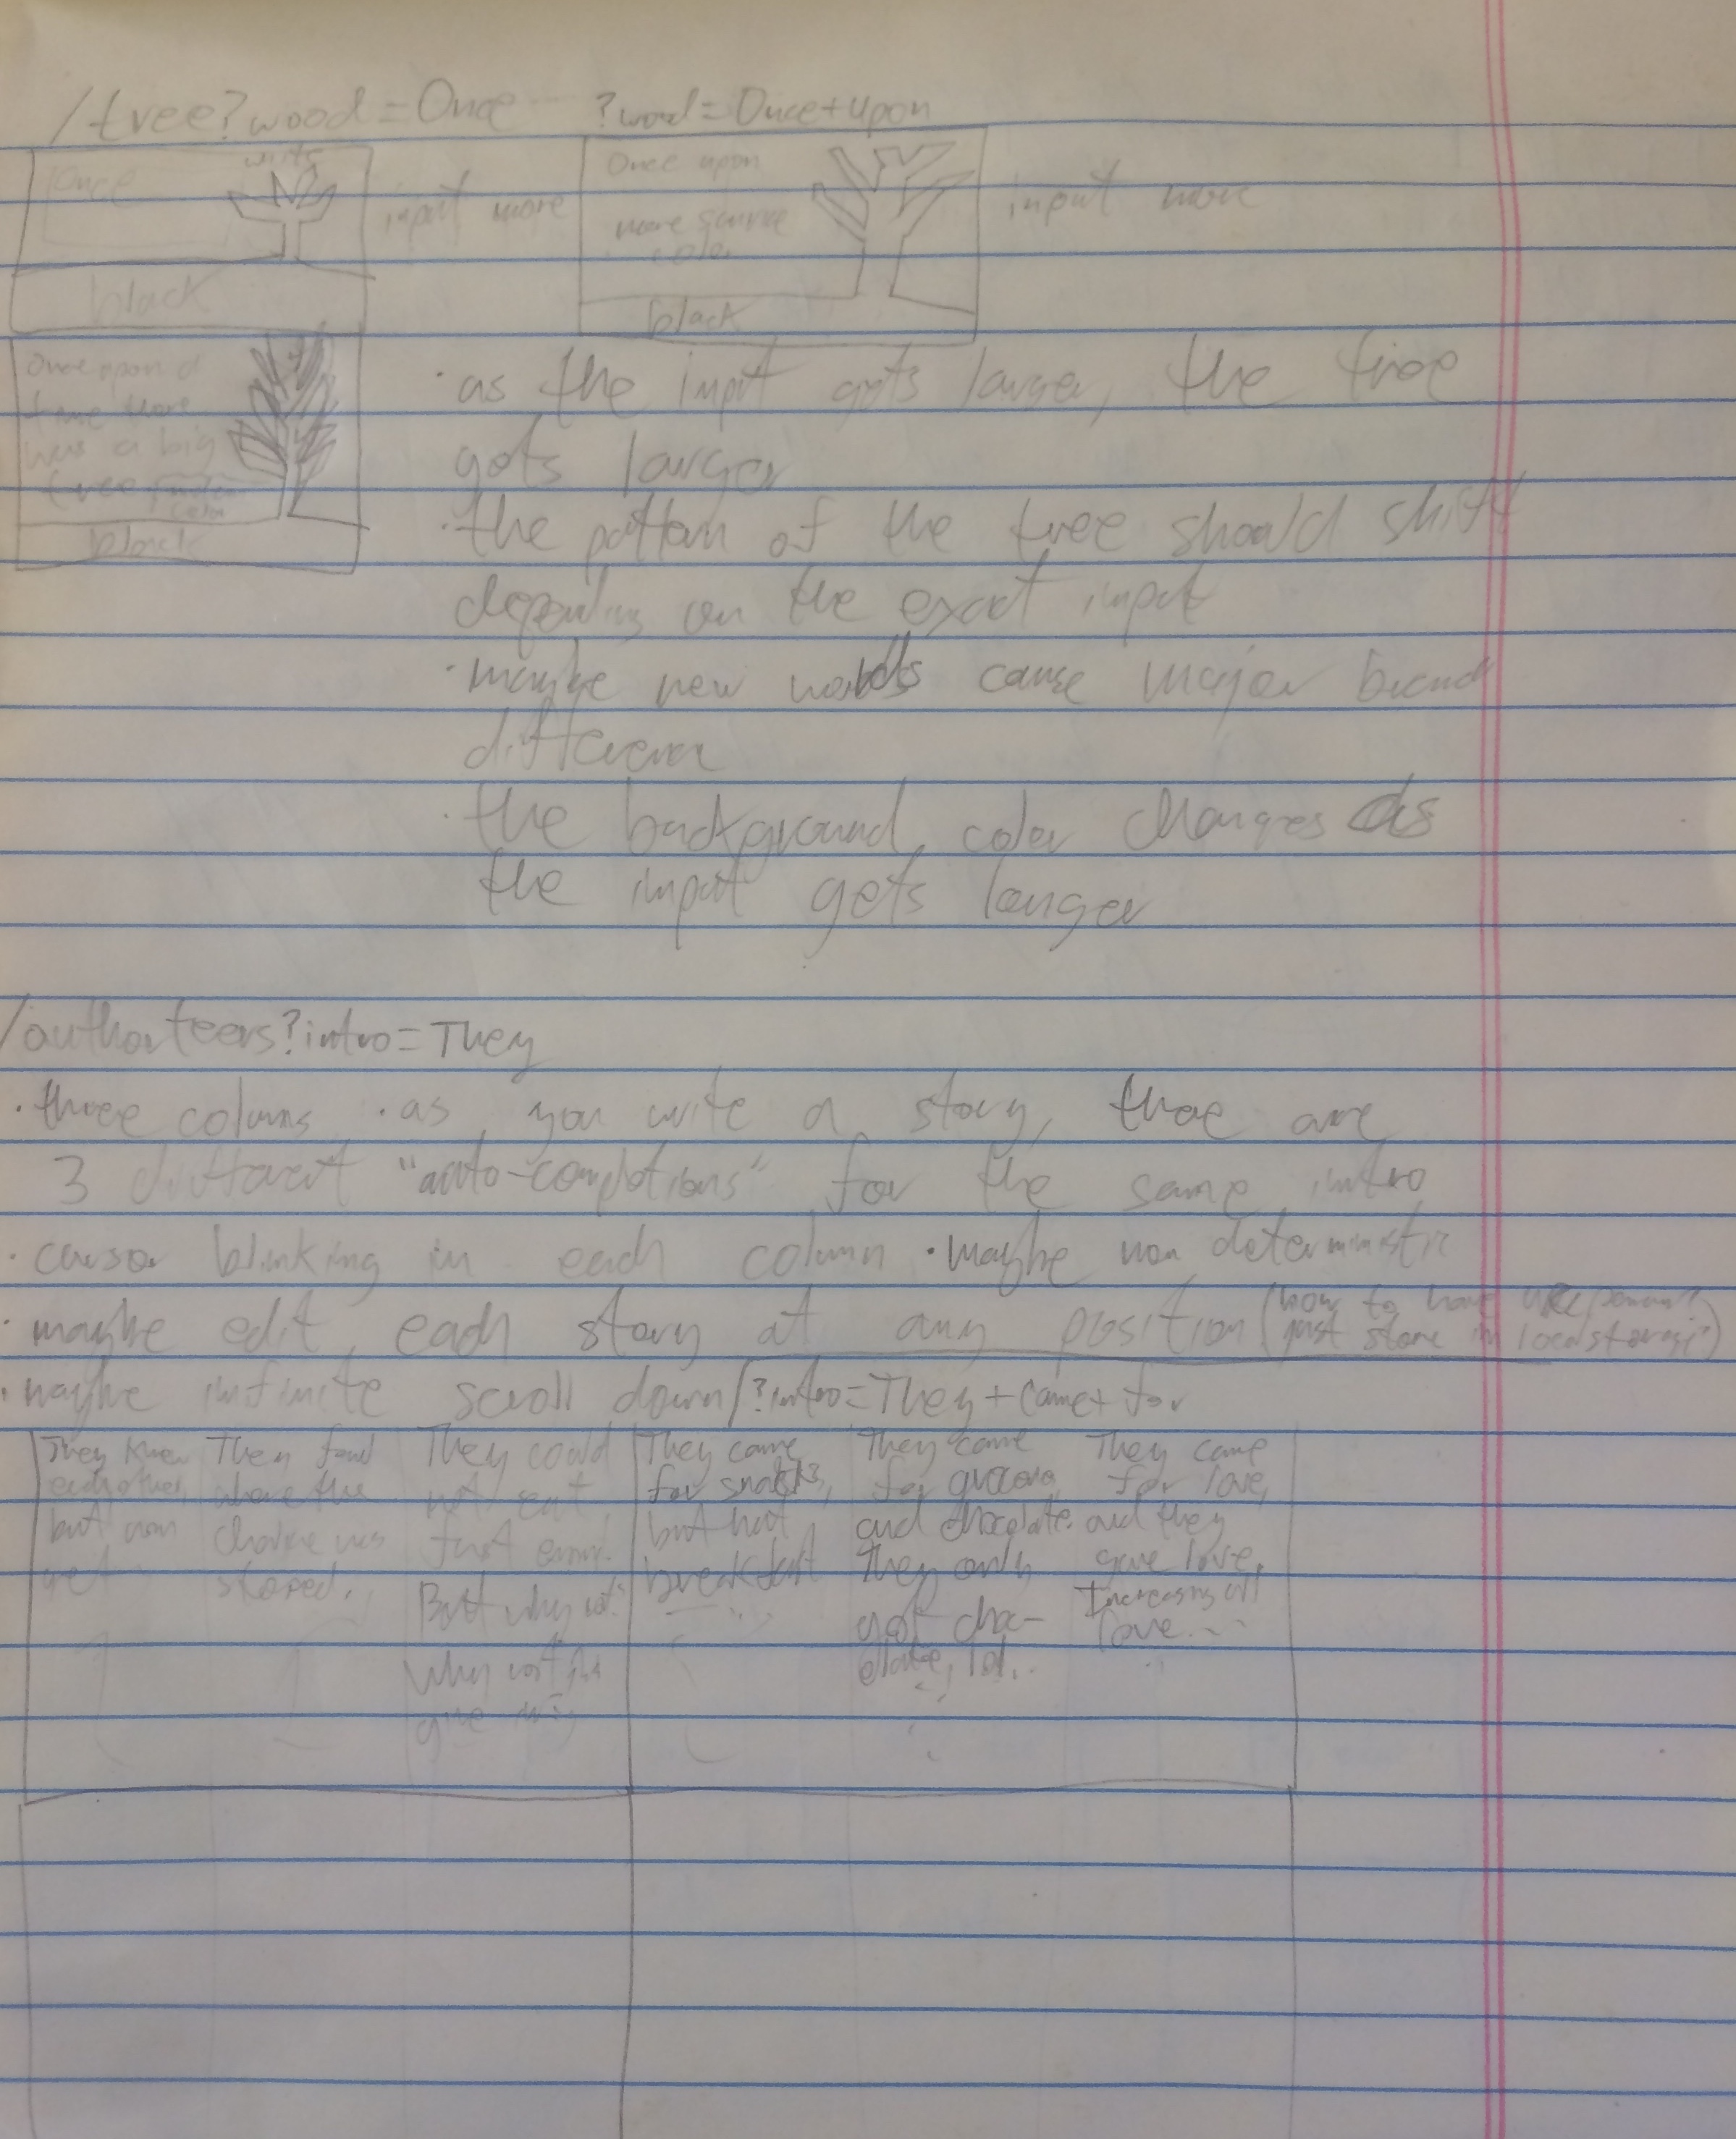 /tree?wood=Once ?word=Once+upon
Once white input more
black
Once upon
more
color
input more
black
Once upon a
time there
was a big
tree
color
black
· as the input gets larger, the tree
gets larger
· the pattern of the tree should shift
depending on the exact input
· maybe new words cause major
· the background color changes as
the input gets longer
/authorteers?intro=They
· three columns · as you write a story, there are
3 different "auto-completions" for the same intro
· cursor blinking in each column · maybe non deterministic
· maybe edit each story at any position (how to have
just store in localstorage?)
· maybe infinite scroll down
?intro=They+came+for
They knew
each other,
but non
yet
They found
where the
was
stored.
They could
not eat
just
But why not?
Why not
give
They came
for snacks,
but not
breakfast
They came
for
and chocolate.
They only
got cho-
colate, lol..
They came
for love,
and they
give love.
Increasing all
love...